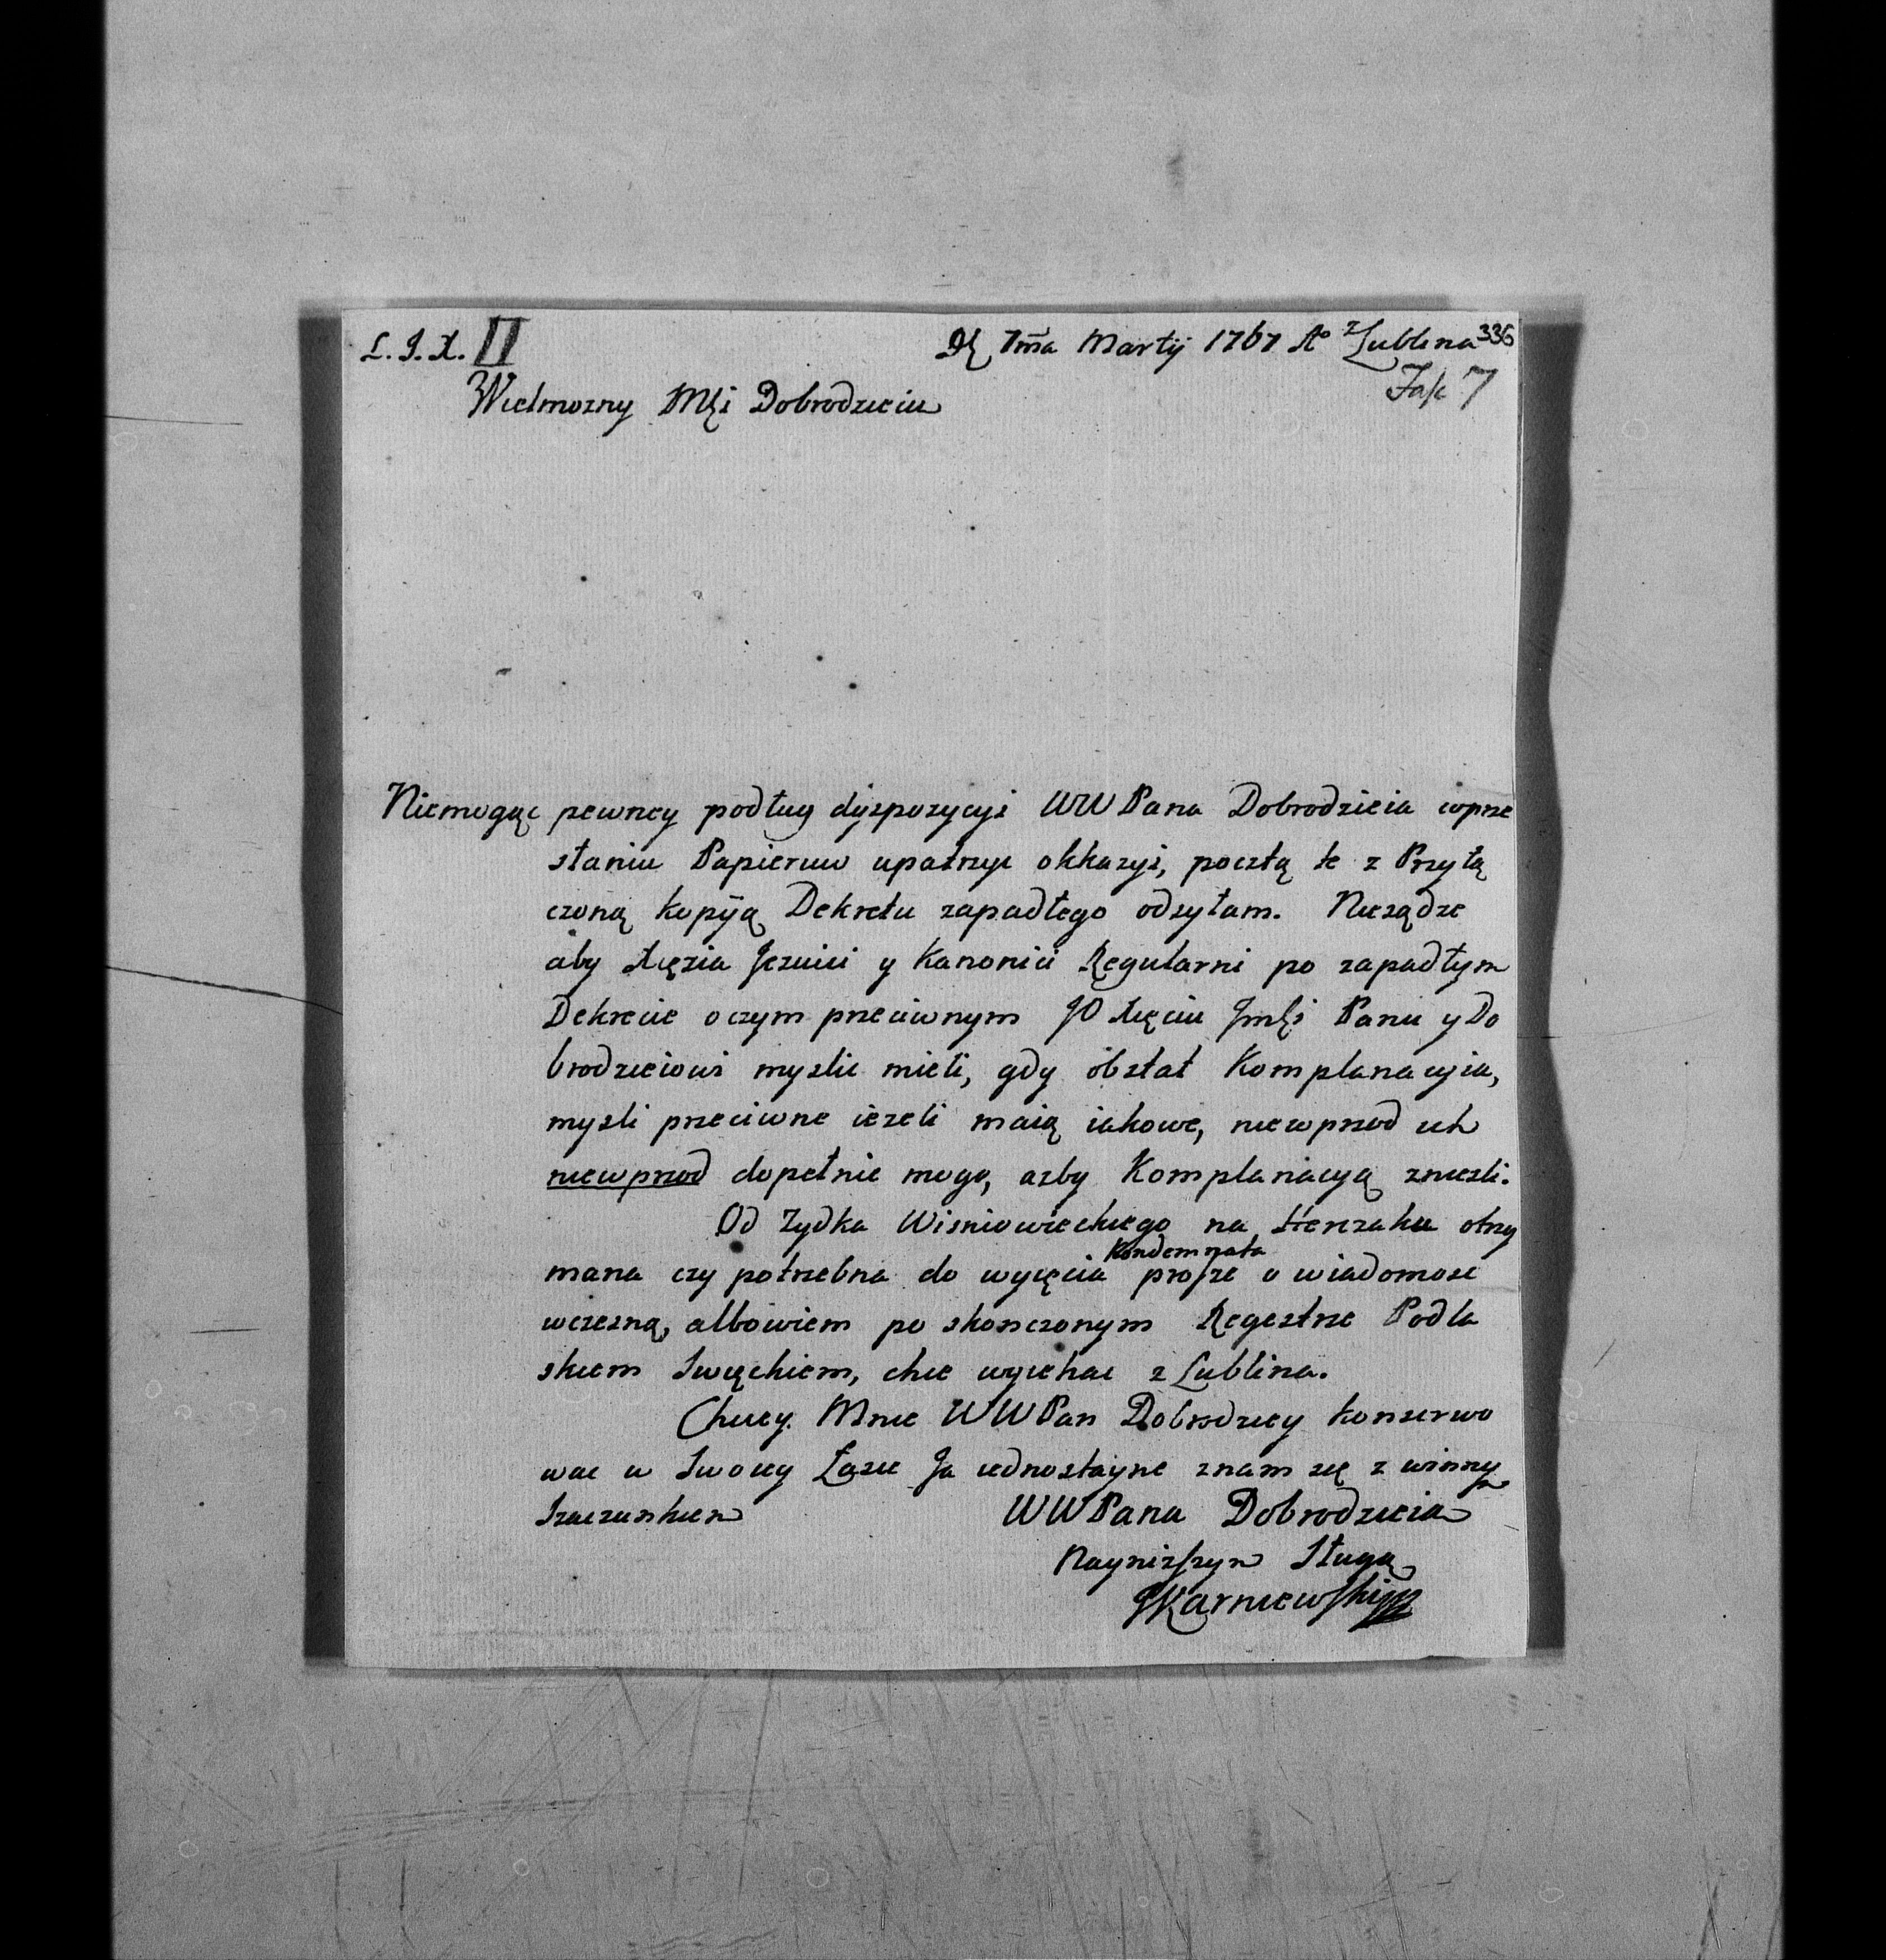 L. J. X. II
D 7ma Martij 1767 Ao z Lublina 336
Fasc 7
Wielmozny Mći Dobrodzieiu
Niemogąc pewney podług dyzpozycyi WW Pana Dobrodzieia wprze
słaniu Papieruw upatrzyc okkazyi, pocztą te z Przyłą
czoną kopiją Dekretu zapadłego odsyłam. Niesądze
aby Xięzia Jezuici y Kanonici Regularni po zapadłym
Dekrecie o czym przeciwnym JO Xięciu Jmći Panu y Do
brodzieiowi myslic mieli, gdy obstat Komplanacyia,
mysli przeciwne iezeli maią iakowe, niewprzod ich
niewprzod dopełnic mogo, azby Komplanacyą zniezli.
Od Zydka Wisniowieckiego na Herszku otrzy
mana czy potrzebna do wyięcia Kondemnata prosze o wiadomosc
wczesną, albowiem po skonczonym Regestrze Podla
skiem Swięckiem, chce wyiehac z Lublina.
Chciey Mnie WW Pan Dobrodziey konserwo
wac w Swoiey Łasce Ja iednostayne znam się z winnym
Szacunkiem
WW Pana Dobrodzieia
Nayniższym Sługą
JKarniewski